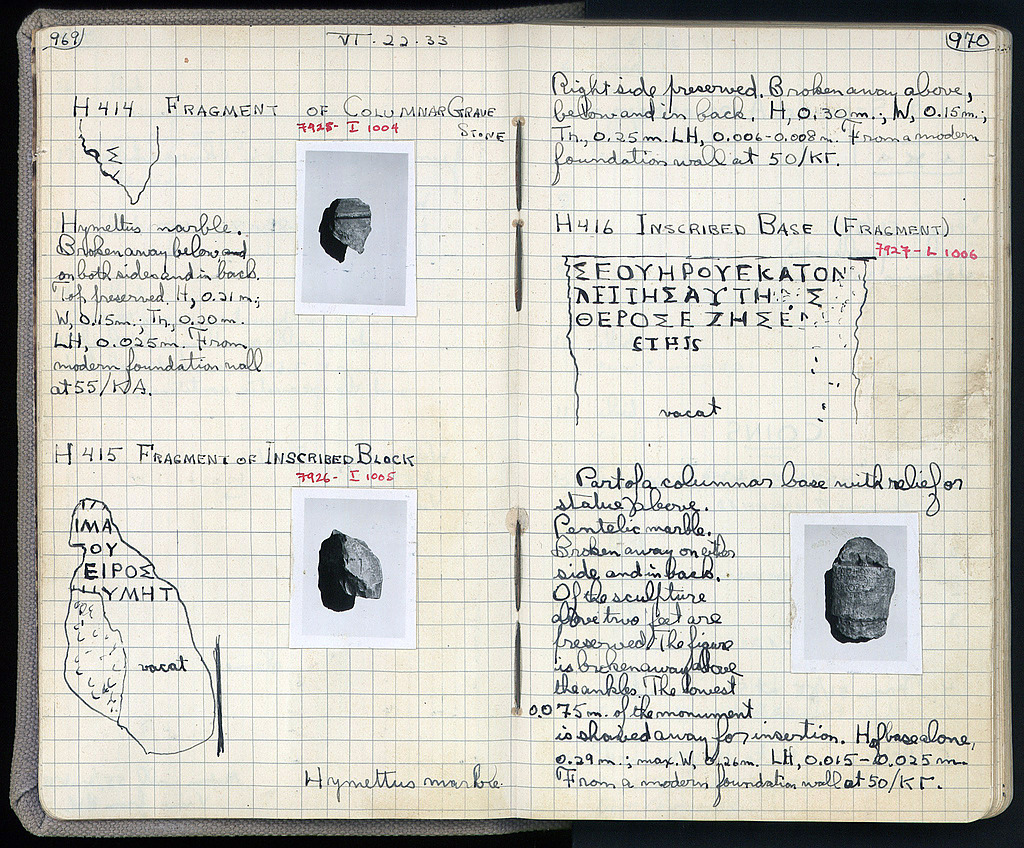 969
VI·22·33
H 414 FRAGMENT OF COLUMNAR GRAVE
STONE
7925- I 1004
Σ
Hymettus marble.
Broken away below and
on both sides and in back.
Top preserved. H, 0.21 m.;
W, 0.15 m.; Th, 0.20 m.
LH, 0.025 m. From
modern foundation wall
at 55/ΚΑ.
H 415 FRAGMENT OF INSCRIBED BLOCK
7926- I 1005
ΙΜΑ
ΟΥ
ΕΙΡΟΣ
ΥΜΗΤ
vacat
Hymettus marble
970
Right side preserved. Broken away above,
below and in back. H, 0.30 m.; W, 0.15 m.;
Th, 0.25 m. LH, 0.006-0.008 m. From a modern
foundation wall at 50/ΚΓ.
H 416 INSCRIBED BASE (FRAGMENT)
7927- I 1006
ΣΕΟΥΗΡΟΥΕΚΑΤΟΝ
ΗΣΑΥΤΗ Σ
ΘΕΡΟΣΕΖΗΣΕ
ΕΤΗ
vacat
Part of a columnar base with relief or
statue above.
Pentelic marble.
Broken away on either
side and in back.
Of the sculpture
above two feet are
preserved. The figure
is broken away above
the ankles. The lowest
0.075 m. of the monument
is shaved away for insertion. H of base alone,
0.29 m.; max. W, 0.26 m. LH, 0.015-0.025 m.
From a modern foundation wall at 50/ΚΓ.